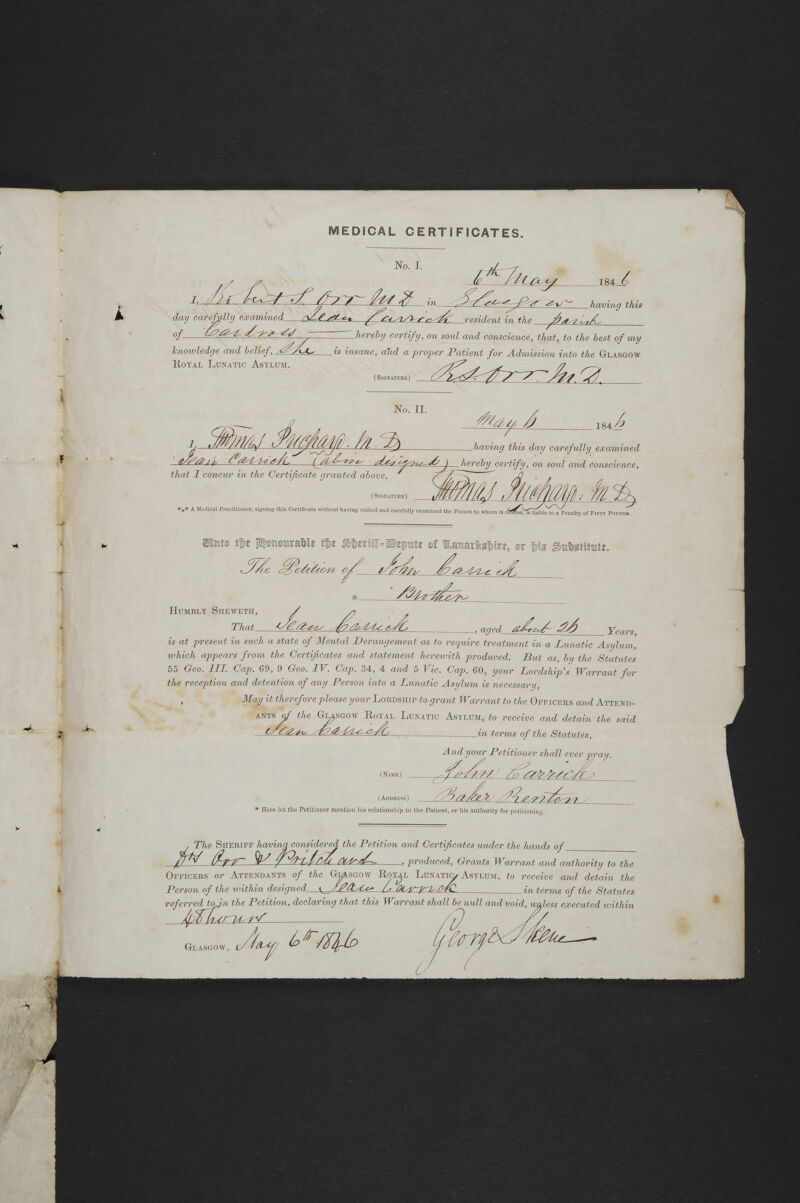 MEDICAL CERTIFICATES.
No. I.
6th May 1846
I, Robert S. Orr M D in Glasgow having this
day carefully examined Jean Carrick resident in the parish
of Cardross hereby certify, on soul and conscience, that, to the best of my
knowledge and belief, She is insane, and a proper Patient for Admission into the GLASGOW
ROYAL LUNATIC ASYLUM.
(SIGNATURE) R. S. Orr. M.D.
No. II.
May 6 1846
I, Thomas Prichard. M. D having this day carefully examined
Jean Carrick (above designed) hereby certify, on soul and conscience,
that I concur in the Certificate granted above.
(SIGNATURE) Thomas Prichard. M D
*** A Medical Practitioner, signing this Certificate without having visited and carefully examined the Person to whom it relates, is liable to a Penalty of FIFTY POUNDS.
Unto the Honourable the Sheriff-Depute of Lanarkshire, or his Substitute.
The Petition of John Carrick
* Brother
HUMBLY SHEWETH,
That Jean Carrick, aged about 26 Years,
is at present in such a state of Mental Derangement as to require treatment in a Lunatic Asylum,
which appears from the Certificates and statement herewith produced. But as, by the Statutes
55 Geo. III. Cap. 69, 9 Geo. IV. Cap. 34, 4 and 5 Vic. Cap. 60, your Lordship's Warrant for
the reception and detention of any Person into a Lunatic Asylum is necessary,
May it therefore please your LORDSHIP to grant Warrant to the OFFICERS and ATTEND-
ANTS of the GLASGOW ROYAL LUNATIC ASYLUM, to receive and detain the said
Jean Carrick in terms of the Statutes,
And your Petitioner shall ever pray.
(NAME) John Carrick
(ADDRESS) Baker Renton
* Here let the Petitioner mention his relationship to the Patient, or his authority for petitioning.
The SHERIFF having considered the Petition and Certificates under the hands of
Drs Orr & Pritchard, produced, Grants Warrant and authority to the
OFFICERS or ATTENDANTS of the GLASGOW ROYAL LUNATIC ASYLUM, to receive and detain the
Person of the within designed Jean Carrick in terms of the Statutes
referred to in the Petition, declaring that this Warrant shall be null and void, unless executed within
48 hours
GLASGOW, May 6th 1846 George Skene